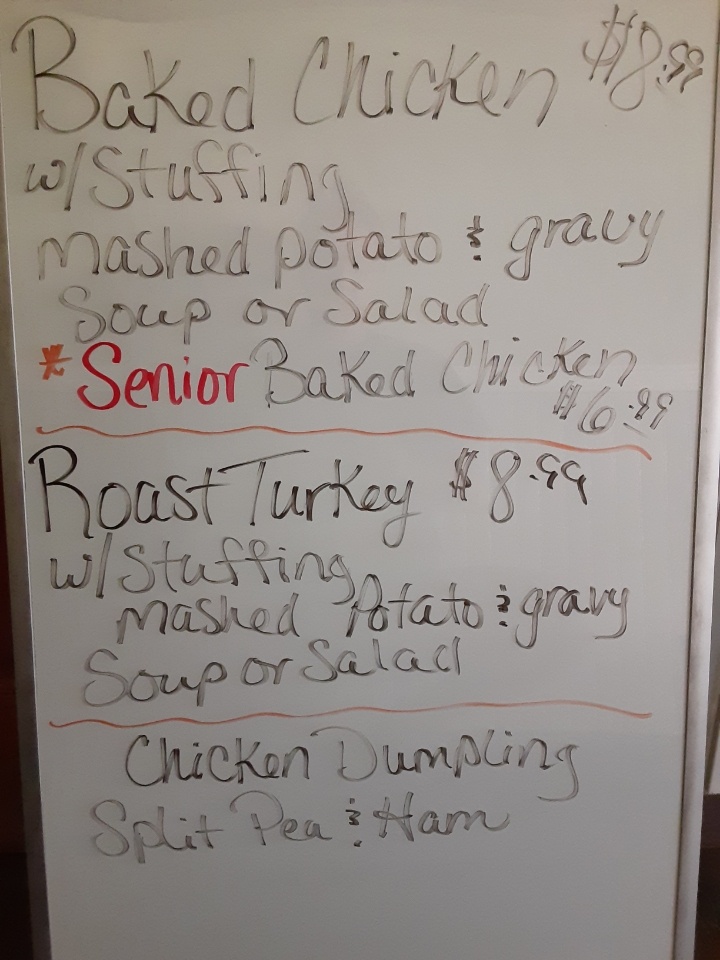 Baked Chicken $8.99
w/Stuffing
mashed potato & gravy
Soup or Salad
*Senior Baked Chicken
$6.99
Roast Turkey $8.99
w/Stuffing
mashed Potato & gravy
Soup or Salad
Chicken Dumpling
Split Pea & Ham